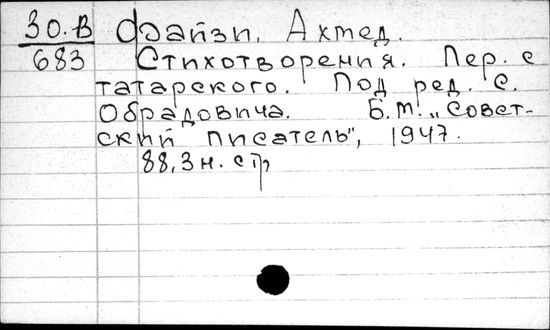 30.В Фэйзи. Ахмед.
683 Стихотворения. Пер. с
татарского. Под ред. С.
Обрадовича. Б.м. „Совет-
ский писатель", 1947.
88,3 н. стр